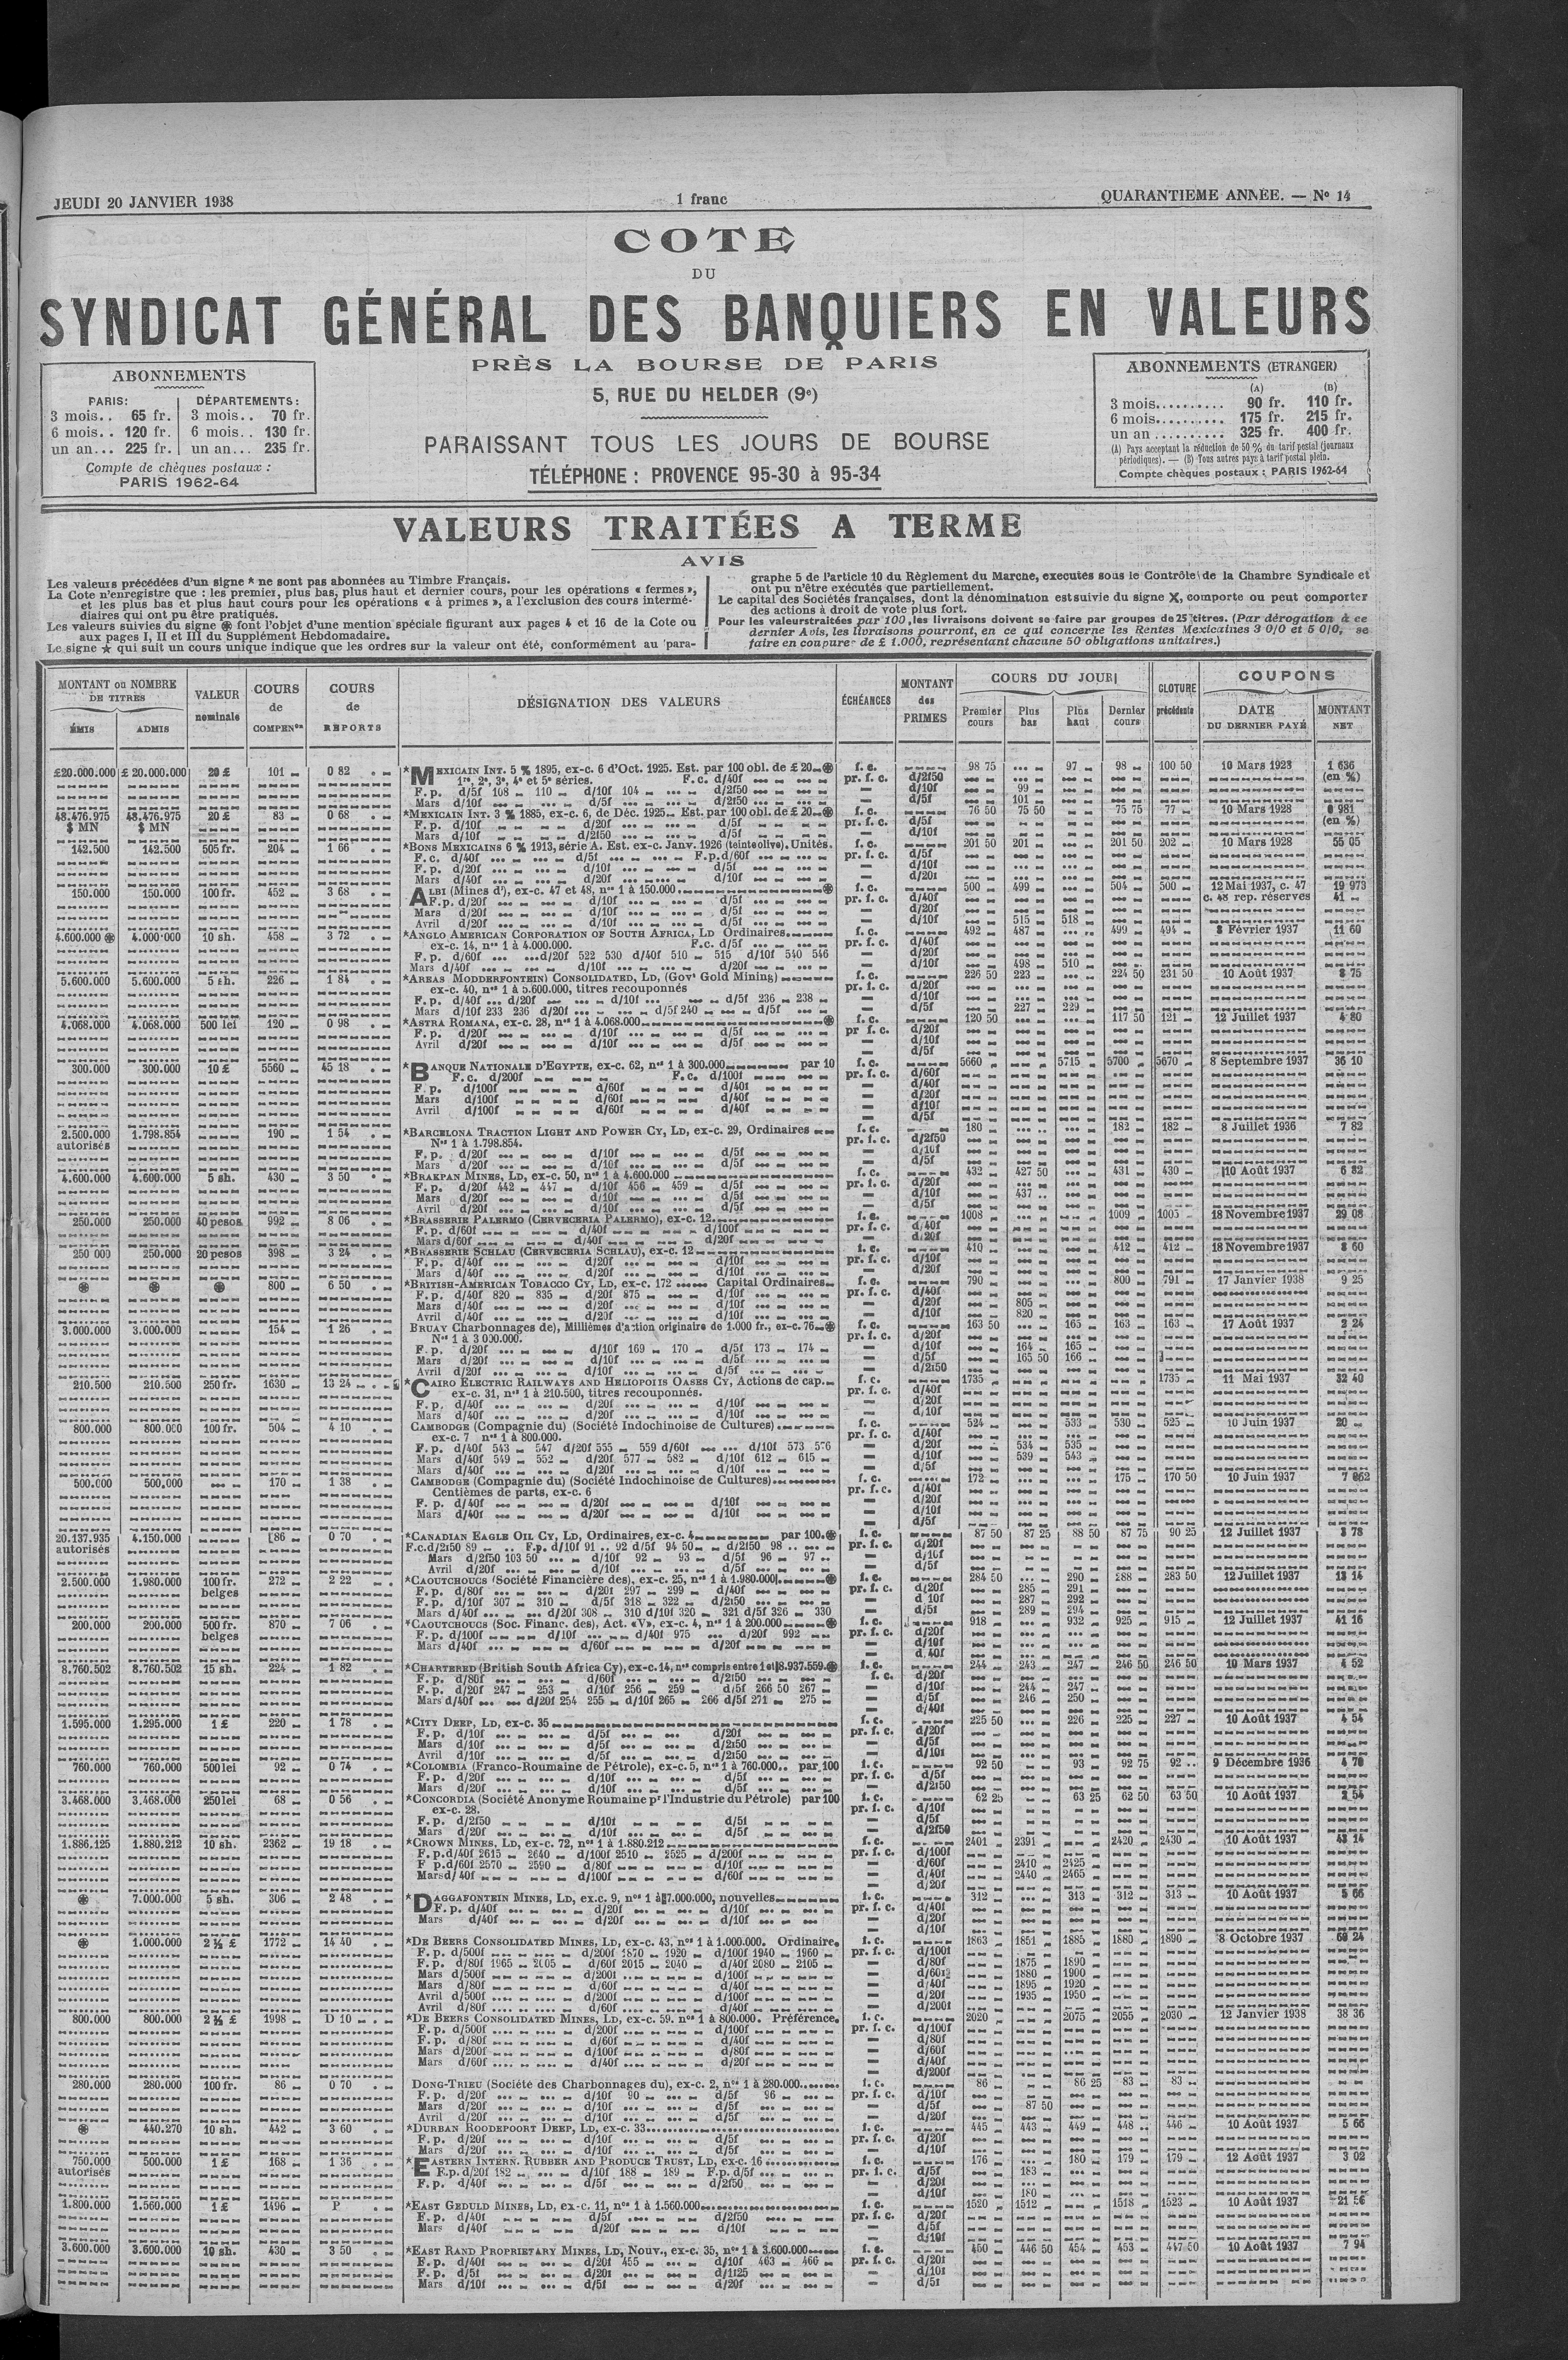 JEUDI 20 JANVIER 1938
1 franc
QUARANTIEME ANNÉE. — No 14
COTE
DU
SYNDICAT GÉNÉRAL DES BANQUIERS EN VALEURS
PRÈS LA BOURSE DE PARIS
5, RUE DU HELDER (9e)
PARAISSANT TOUS LES JOURS DE BOURSE
TÉLÉPHONE : PROVENCE 95-30 à 95-34
ABONNEMENTS
PARIS: DÉPARTEMENTS:
3 mois.. 65 fr. 3 mois.. 70 fr.
6 mois.. 120 fr. 6 mois.. 130 fr.
un an... 225 fr. un an... 235 fr.
Compte de chèques postaux :
PARIS 1962-64
ABONNEMENTS (ETRANGER)
(A) (B)
3 mois.......... 90 fr. 110 fr.
6 mois.......... 175 fr. 215 fr.
un an .......... 325 fr. 400 fr.
(A) Pays acceptant la réduction de 50 % du tarif postal (journaux
périodiques). — (B) Tous autres pays à tarif postal plein.
Compte chèques postaux : PARIS 1962-64
VALEURS TRAITÉES A TERME
AVIS
Les valeurs précédées d'un signe * ne sont pas abonnées au Timbre Français.
La Cote n'enregistre que : les premier, plus bas, plus haut et dernier cours, pour les opérations « fermes »,
et les plus bas et plus haut cours pour les opérations « à primes », a l'exclusion des cours intermé-
diaires qui ont pu être pratiqués.
Les valeurs suivies du signe ⊛ font l'objet d'une mention spéciale figurant aux pages 4 et 16 de la Cote ou
aux pages I, II et III du Supplément Hebdomadaire.
Le signe ★ qui suit un cours unique indique que les ordres sur la valeur ont été, conformément au para-
graphe 5 de l'article 10 du Règlement du Marche, executes sous le Contrôle de la Chambre Syndicale et
ont pu n'être exécutés que partiellement.
Le capital des Sociétés françaises, dont la dénomination est suivie du signe X, comporte ou peut comporter
des actions à droit de vote plus fort.
Pour les valeurs traitées par 100, les livraisons doivent se faire par groupes de 25 titres. (Par dérogation à ce
dernier Avis, les livraisons pourront, en ce qui concerne les Rentes Mexicaines 3 0/0 et 5 0/0, se
faire en coupures de £ 1.000, représentant chacune 50 obligations unitaires.)
MONTANT ou NOMBRE DE TITRES
ÉMIS ADMIS
VALEUR nominale
COURS de COMPENon
COURS de REPORTS
DÉSIGNATION DES VALEURS
ÉCHÉANCES
MONTANT des PRIMES
COURS DU JOUR
Premier cours Plus bas Plus haut Dernier cours
CLOTURE précédente
COUPONS
DATE DU DERNIER PAYÉ MONTANT NET
£20.000.000 £ 20.000.000 20 £ 101 0 82 *MEXICAIN INT. 5 % 1895, ex-c. 6 d'Oct. 1925. Est. par 100 obl. de £ 20 ⊛ f. c. 98 75 97 98 100 50 10 Mars 1923 1 636
1re, 2e, 3e, 4e et 5e séries. F.c. d/40f pr. f. c. d/2f50 (en %)
F. p. d/5f 108 110 d/10f 104 d/2f50 — d/10f 99
Mars d/10f d/5f d/2f50 — d/5f 101
48.476.975 48.476.975 20 £ 83 0 68 *MEXICAIN INT. 3 % 1885, ex-c. 6, de Déc. 1925 Est. par 100 obl. de £ 20 ⊛ f. c. 76 50 75 50 75 75 77 10 Mars 1928 0 981
$ MN $ MN F. p. d/10f d/20f d/5f pr. f. c. d/5f (en %)
Mars d/10f d/2f50 d/5f — d/10f
142.500 142.500 505 fr. 204 1 66 *BONS MEXICAINS 6 % 1913, série A. Est. ex-c. Janv. 1926 (teinte olive). Unités. f. c. 201 50 201 201 50 202 10 Mars 1928 55 05
F. c. d/40f d/5f F.p.d/60f pr. f. c. d/5f
F. p. d/20f d/10f d/5f — d/10f
Mars d/40f d/20f d/10f — d/20f
150.000 150.000 100 fr. 452 3 68 ALBI (Mines d'), ex-c. 47 et 48, nos 1 à 150.000 ⊛ f. c. 500 499 504 500 12 Mai 1937, c. 47 19 973
F.p. d/20f d/10f d/5f pr. f. c. d/40f c. 48 rep. réserves 41
Mars d/20f d/10f d/5f — d/20f
Avril d/20f d/10f d/5f — d/10f 515 518
4.600.000 ⊛ 4.000.000 10 sh. 458 3 72 *ANGLO AMERICAN CORPORATION OF SOUTH AFRICA, LD Ordinaires f. c. 492 487 499 494 8 Février 1937 11 60
ex-c. 14, nos 1 à 4.000.000. F.c. d/5f pr. f. c. d/40f
F. p. d/60f d/20f 522 530 d/40f 510 515 d/10f 540 546 — d/20f
Mars d/40f d/10f d/20f — d/10f 498 510
5.600.000 5.600.000 5 sh. 226 1 84 *AREAS MODDERFONTEIN) CONSOLIDATED, LD, (Govt Gold Mining) f. c. 226 50 223 224 50 231 50 10 Août 1937 8 75
ex-c. 40, nos 1 à 5.600.000, titres recouponnés pr. f. c. d/20f
F. p. d/40f d/20f d/10f d/5f 236 238 — d/10f
Mars d/10f 233 236 d/20f d/5f 240 d/5f — d/5f 227 229
4.068.000 4.068.000 500 lei 120 0 98 *ASTRA ROMANA, ex-c. 28, nos 1 à 4.068.000 ⊛ f. c. 120 50 117 50 121 12 Juillet 1937 4 80
F. p. d/20f d/10f d/5f pr f. c. d/20f
Avril d/20f d/10f d/5f — d/10f
— d/5f
300.000 300.000 10 £ 5560 45 18 *BANQUE NATIONALE D'EGYPTE, ex-c. 62, nos 1 à 300.000 par 10 f. c. 5660 5715 5700 5670 8 Septembre 1937 36 10
F. c. d/200f F. c. d/100f pr. f. c. d/60f
F. p. d/100f d/60f d/40f — d/40f
Mars d/100f d/60f d/40f — d/20f
Avril d/100f d/60f d/40f — d/10f
— d/5f
2.500.000 1.798.854 190 1 54 *BARCELONA TRACTION LIGHT AND POWER CY, LD, ex-c. 29, Ordinaires f. c. 180 182 182 8 Juillet 1936 7 82
autorisés Nos 1 à 1.798.854. pr. f. c. d/2f50
F. p. d/20f d/10f d/5f — d/10f
Mars d/20f d/10f d/5f — d/5f
4.600.000 4.600.000 5 sh. 430 3 50 *BRAKPAN MINES, LD, ex-c. 50, nos 1 à 4.600.000 f. c. 432 427 50 431 430 10 Août 1937 6 82
F. p. d/20f 442 447 d/10f 456 459 d/5f pr. f. c. d/20f
Mars d/20f d/10f d/5f — d/10f 437
Avril d/20f d/10f d/5f — d/5f
250.000 250.000 40 pesos 992 8 06 *BRASSERIE PALERMO (CERVECERIA PALERMO), ex-c. 12 f. c. 1008 1009 1005 18 Novembre 1937 29 08
F. p. d/60f d/40f d/100f pr. f. c. d/40f
Mars d/60f d/40f d/20f — d/20f
250 000 250.000 20 pesos 398 3 24 *BRASSERIE SCHLAU (CERVECERIA SCHLAU), ex-c. 12 f. c. 410 412 412 18 Novembre 1937 8 60
F. p. d/40f d/20f d/10f pr. f. c. d/10f
Mars d/40f d/20f d/10f — d/20f
⊛ ⊛ ⊛ 800 6 50 *BRITISH-AMERICAN TOBACCO CY, LD, ex-c. 172 Capital Ordinaires f. c. 790 800 791 17 Janvier 1938 9 25
F. p. d/40f 820 835 d/20f 875 d/10f pr. f. c. d/40f
Mars d/40f d/20f d/10f — d/20f 805
Avril d/40f d/20f d/10f — d/10f 820
3.000.000 3.000.000 154 1 26 BRUAY Charbonnages de), Millièmes d'action originaire de 1.000 fr., ex-c. 76 ⊛ f. c. 163 50 165 163 163 17 Août 1937 2 24
Nos 1 à 3 000.000. pr. f. c. d/20f
F. p. d/20f d/10f 169 170 d/5f 173 174 — d/10f 164 165
Mars d/20f d/10f d/5f — d/5f 165 50 166
Avril d/20f d/10f d/5f — d/2f50
210.500 210.500 250 fr. 1630 13 24 *CAIRO ELECTRIC RAILWAYS AND HELIOPOLIS OASES CY, Actions de cap. f. c. 1735 1735 11 Mai 1937 32 40
ex-c. 31, nos 1 à 210.500, titres recouponnés. pr. f. c. d/40f
F. p. d/40f d/20f d/10f — d/20f
Mars d/40f d/20f d/10f — d/10f
800.000 800.000 100 fr. 504 4 10 CAMBODGE (Compagnie du) (Société Indochinoise de Cultures) f. c. 524 533 530 525 10 Juin 1937 20
ex-c. 7 nos 1 à 800.000. pr. f. c. d/40f
F. p. d/40f 543 547 d/20f 555 559 d/60f d/10f 573 576 — d/20f 534 535
Mars d/40f 549 552 d/20f 577 582 d/10f 612 615 — d/10f 539 543
Mars d/40f d/20f d/10f — d/5f
500.000 500.000 170 1 38 CAMBODGE (Compagnie du) (Société Indochinoise de Cultures) f. c. 172 175 170 50 10 Juin 1937 7 062
Centièmes de parts, ex-c. 6 pr. f. c. d/40f
F. p. d/40f d/20f d/10f — d/20f
Mars d/40f d/20f d/10f — d/10f
— d/5f
20.137.935 4.150.000 86 0 70 *CANADIAN EAGLE OIL CY, LD, Ordinaires, ex-c. 4 par 100. ⊛ f. c. 87 50 87 25 88 50 87 75 90 25 12 Juillet 1937 3 78
autorisés F.c.d/2f50 89 F.p. d/10f 91 92 d/5f 94 50 d/2f50 98 pr. f. c. d/20f
Mars d/2f50 103 50 d/10f 92 93 d/5f 96 97 — d/10f
Avril d/20f d/10f d/5f — d/5f
2.500.000 1.980.000 100 fr. 272 2 22 *CAOUTCHOUCS (Société Financière des), ex-c. 25, nos 1 à 1.980.000 ⊛ f. c. 284 50 290 288 283 50 12 Juillet 1937 13 14
belges F. p. d/80f d/20f 297 299 d/40f pr. f. c. d/20f 285 291
F. p. d/10f 307 310 d/5f 318 322 d/2f50 — d 10f 287 292
Mars d/40f d/20f 308 310 d/10f 320 321 d/5f 326 330 — d/5f 289 294
200.000 200.000 500 fr. 870 7 06 *CAOUTCHOUCS (Soc. Financ. des), Act. «V», ex-c. 4, nos 1 à 200.000 ⊛ f. c. 918 932 925 915 12 Juillet 1937 41 16
belges F. p. d/100f d/10f d/40f 975 d/20f 992 pr. f. c. d/20f
Mars d/40f d/60f d/20f — d/10f
— d/40f
8.760.502 8.760.502 15 sh. 224 1 82 *CHARTERED (British South Africa Cy), ex-c. 14, nos compris entre 1 et 8.937.559 ⊛ f. c. 244 243 247 246 50 246 50 10 Mars 1937 4 52
F. p. d/80f d/60f d/2f50 f. c. d/20f
F. p. d/20f 247 253 d/10f 256 259 d/5f 266 50 267 — d/10f 244 247
Mars d/40f d/20f 254 255 d/10f 265 266 d/5f 271 275 — d/5f 246 250
— d/40f
1.595.000 1.295.000 1 £ 220 1 78 *CITY DEEP, LD, ex-c. 35 f. c. 225 50 226 225 227 10 Août 1937 4 54
F. p. d/10f d/5f d/20f pr. f. c. d/20f
Mars d/10f d/5f d/2f50 — d/5f
Avril d/10f d/5f d/2f50 — d/10f
760.000 760.000 500 lei 92 0 74 *COLOMBIA (Franco-Roumaine de Pétrole), ex-c. 5, nos 1 à 760.000.. par 100 f. c. 92 50 93 92 75 92 9 Décembre 1936 4 78
F. p. d/20f d/10f d/5f pr. f. c. d/5f
Mars d/20f d/10f d/5f — d/2f50
3.468.000 3.468.000 250 lei 68 0 56 *CONCORDIA (Société Anonyme Roumaine pr l'Industrie du Pétrole) par 100 f. c. 62 25 63 25 62 50 63 50 10 Août 1937 2 54
ex-c. 28. pr. f. c. d/10f
F. p. d/2f50 d/10f d/5f — d/5f
Mars d/20f d/10f d/5f — d/2f50
1.886.125 1.880.212 10 sh. 2362 19 18 *CROWN MINES, LD, ex-c. 72, nos 1 à 1.880.212 f. c. 2401 2391 2420 2430 10 Août 1937 43 14
F. p.d/40f 2615 2640 d/100f 2510 2525 d/200f pr. f. c. d/100f
F p.d/60f 2570 2590 d/80f d/10f — d/60f 2410 2425
Mars d/40f d/100f d/60f — d/40f 2440 2465
— d/20f
⊛ 7.000.000 5 sh. 306 2 48 *DAGGAFONTEIN MINES, LD, ex.c. 9, nos 1 à 7.000.000, nouvelles f. c. 312 313 312 313 10 Août 1937 5 66
F. p. d/40f d/20f d/10f pr. f. c. d/40f
Mars d/40f d/20f d/10f — d/20f
— d/10f
⊛ 1.000.000 2 ½ £ 1772 14 40 *DE BEERS CONSOLIDATED MINES, LD, ex-c. 43, nos 1 à 1.000.000. Ordinaire. f. c. 1863 1851 1885 1880 1890 8 Octobre 1937 60 24
F. p. d/500f d/200f 1870 1920 d/100f 1940 1960 pr. f. c. d/100f
F. p. d/80f 1965 2005 d/60f 2015 2040 d/40f 2080 2105 — d/80f 1875 1890
Mars d/500f d/200f d/100f — d/60f 1880 1900
Mars d/80f d/60f d/40f — d/40f 1895 1920
Avril d/500f d/200f d/100f — d/20f 1935 1950
Avril d/80f d/60f d/40f — d/200f
800.000 800.000 2 ½ £ 1998 D 10 *DE BEERS CONSOLIDATED MINES, LD, ex-c. 59. nos 1 à 800.000. Préférence. f. c. 2020 2075 2055 2030 12 Janvier 1938 38 36
F. p. d/500f d/200f d/100f pr. f. c. d/100f
F. p. d/80f d/60f d/40f — d/80f
Mars d/200f d/100f d/80f — d/60f
Mars d/60f d/40f d/20f — d/40f
— d/200f
280.000 280.000 100 fr. 86 0 70 DONG-TRIEU (Société des Charbonnages du), ex-c. 2, nos 1 à 280.000 f. c. 86 86 25 83 83
F. p. d/20f d/10f 90 d/5f 96 pr. f. c. d/10f
Mars d/20f d/10f d/5f — d/5f 87 50
Avril d/20f d/10f d/5f — d/20f
⊛ 440.270 10 sh. 442 3 60 *DURBAN ROODEPOORT DEEP, LD, ex-c. 33 f. c. 445 443 449 448 446 10 Août 1937 5 66
F. p. d/20f d/10f d/5f pr. f. c. d/20f
Mars d/20f d/10f d/5f — d/10f
750.000 500.000 1 £ 168 1 36 *EASTERN INTERN. RUBBER AND PRODUCE TRUST, LD, ex-c. 16 f. c. 176 180 179 179 12 Août 1937 3 02
autorisés F.p. d/20f 182 d/10f 188 189 F.p. d/5f pr. f. c. d/5f 183
F. p. d/40f d/5f d/2f50 — d/20f
— d/10f 180
1.800.000 1.560.000 1 £ 1496 P *EAST GEDULD MINES, LD, ex-c. 11, nos 1 à 1.560.000 f. c. 1520 1512 1518 1523 10 Août 1937 21 56
F. p. d/40f d/5f d/2f50 pr. f. c. d/20f
Mars d/40f d/20f d/10f — d/5f
— d/10f
3.600.000 3.600.000 10 sh. 430 3 50 *EAST RAND PROPRIETARY MINES, LD, Nouv., ex-c. 35, nos 1 à 3.600.000 f. c. 450 446 50 454 453 447 50 10 Août 1937 7 94
F. p. d/40f d/20f 455 d/10f 463 466 pr. f. c. d/20f
F. p. d/5f d/20f d/1f25 — d/10f
Mars d/10f d/5f d/20f — d/5f